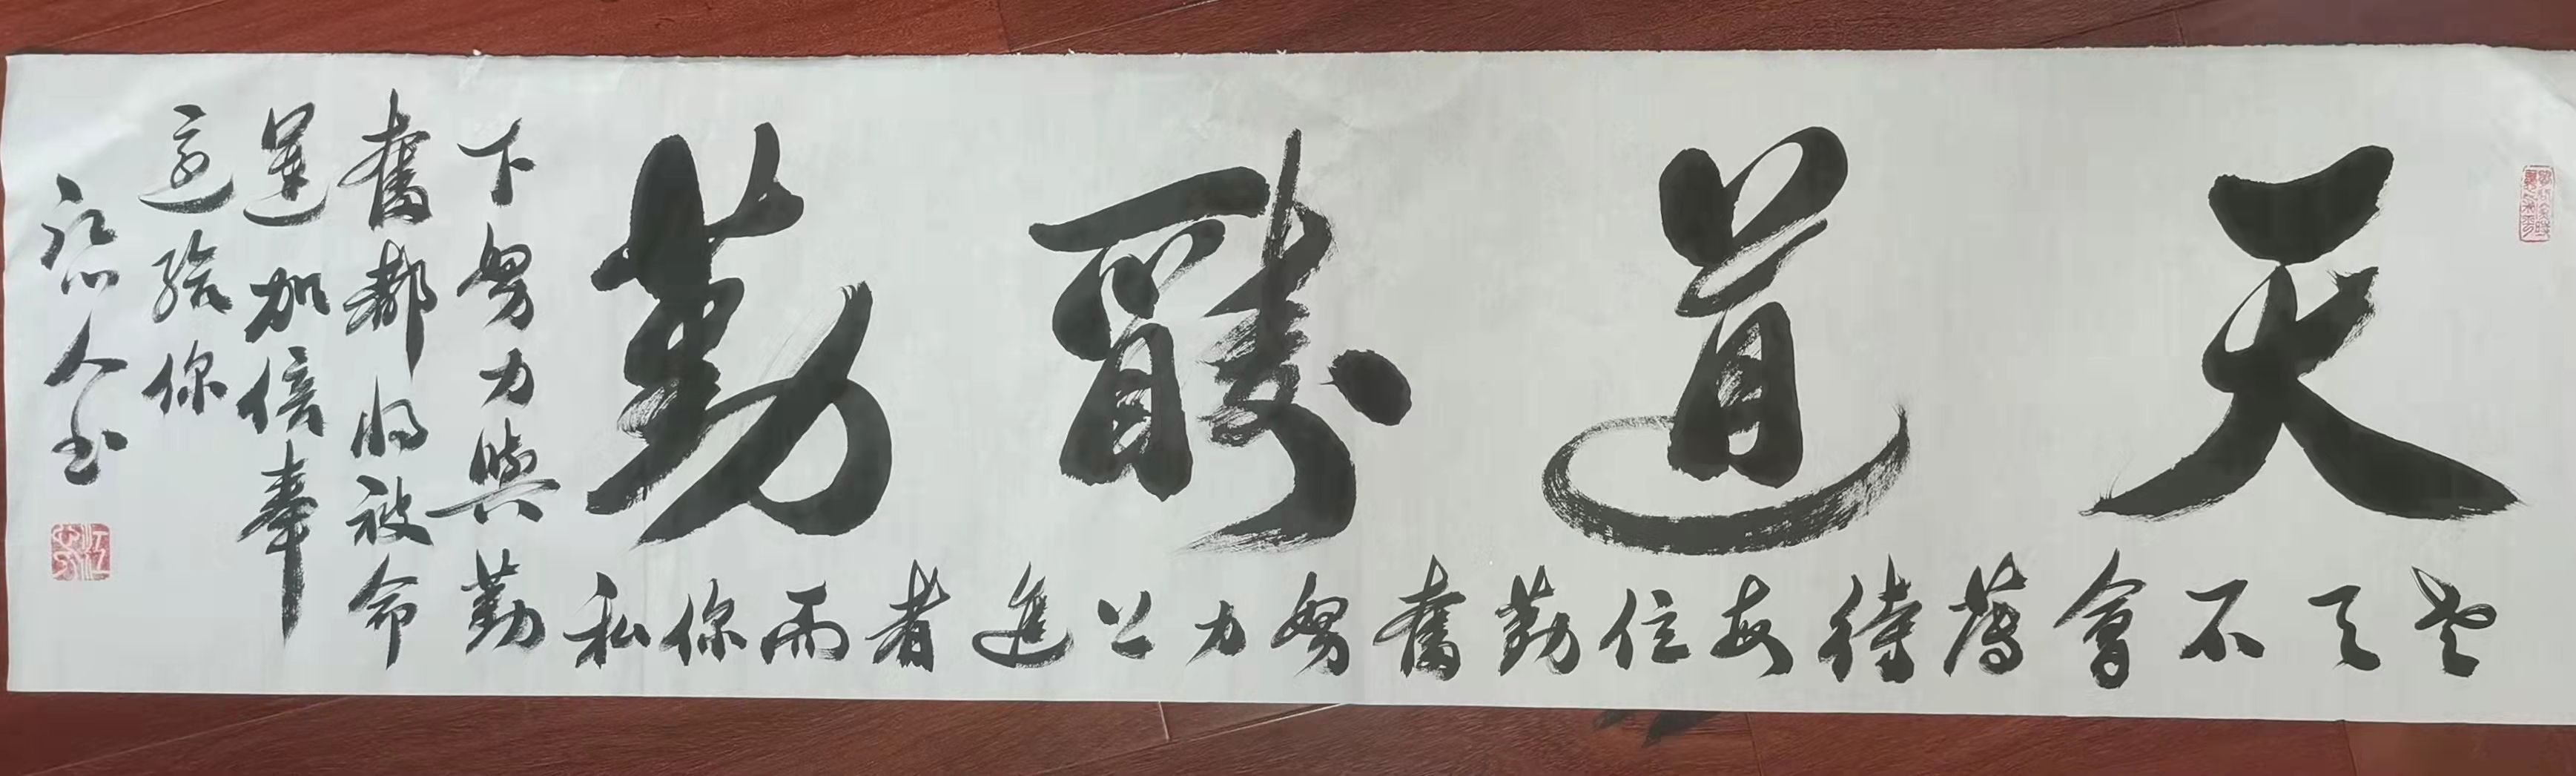 天道酬勤
老天不會薄待每位勤奮努力上進者而你私
下努力與勤
奮都將被命
運加倍奉
還給你
人书